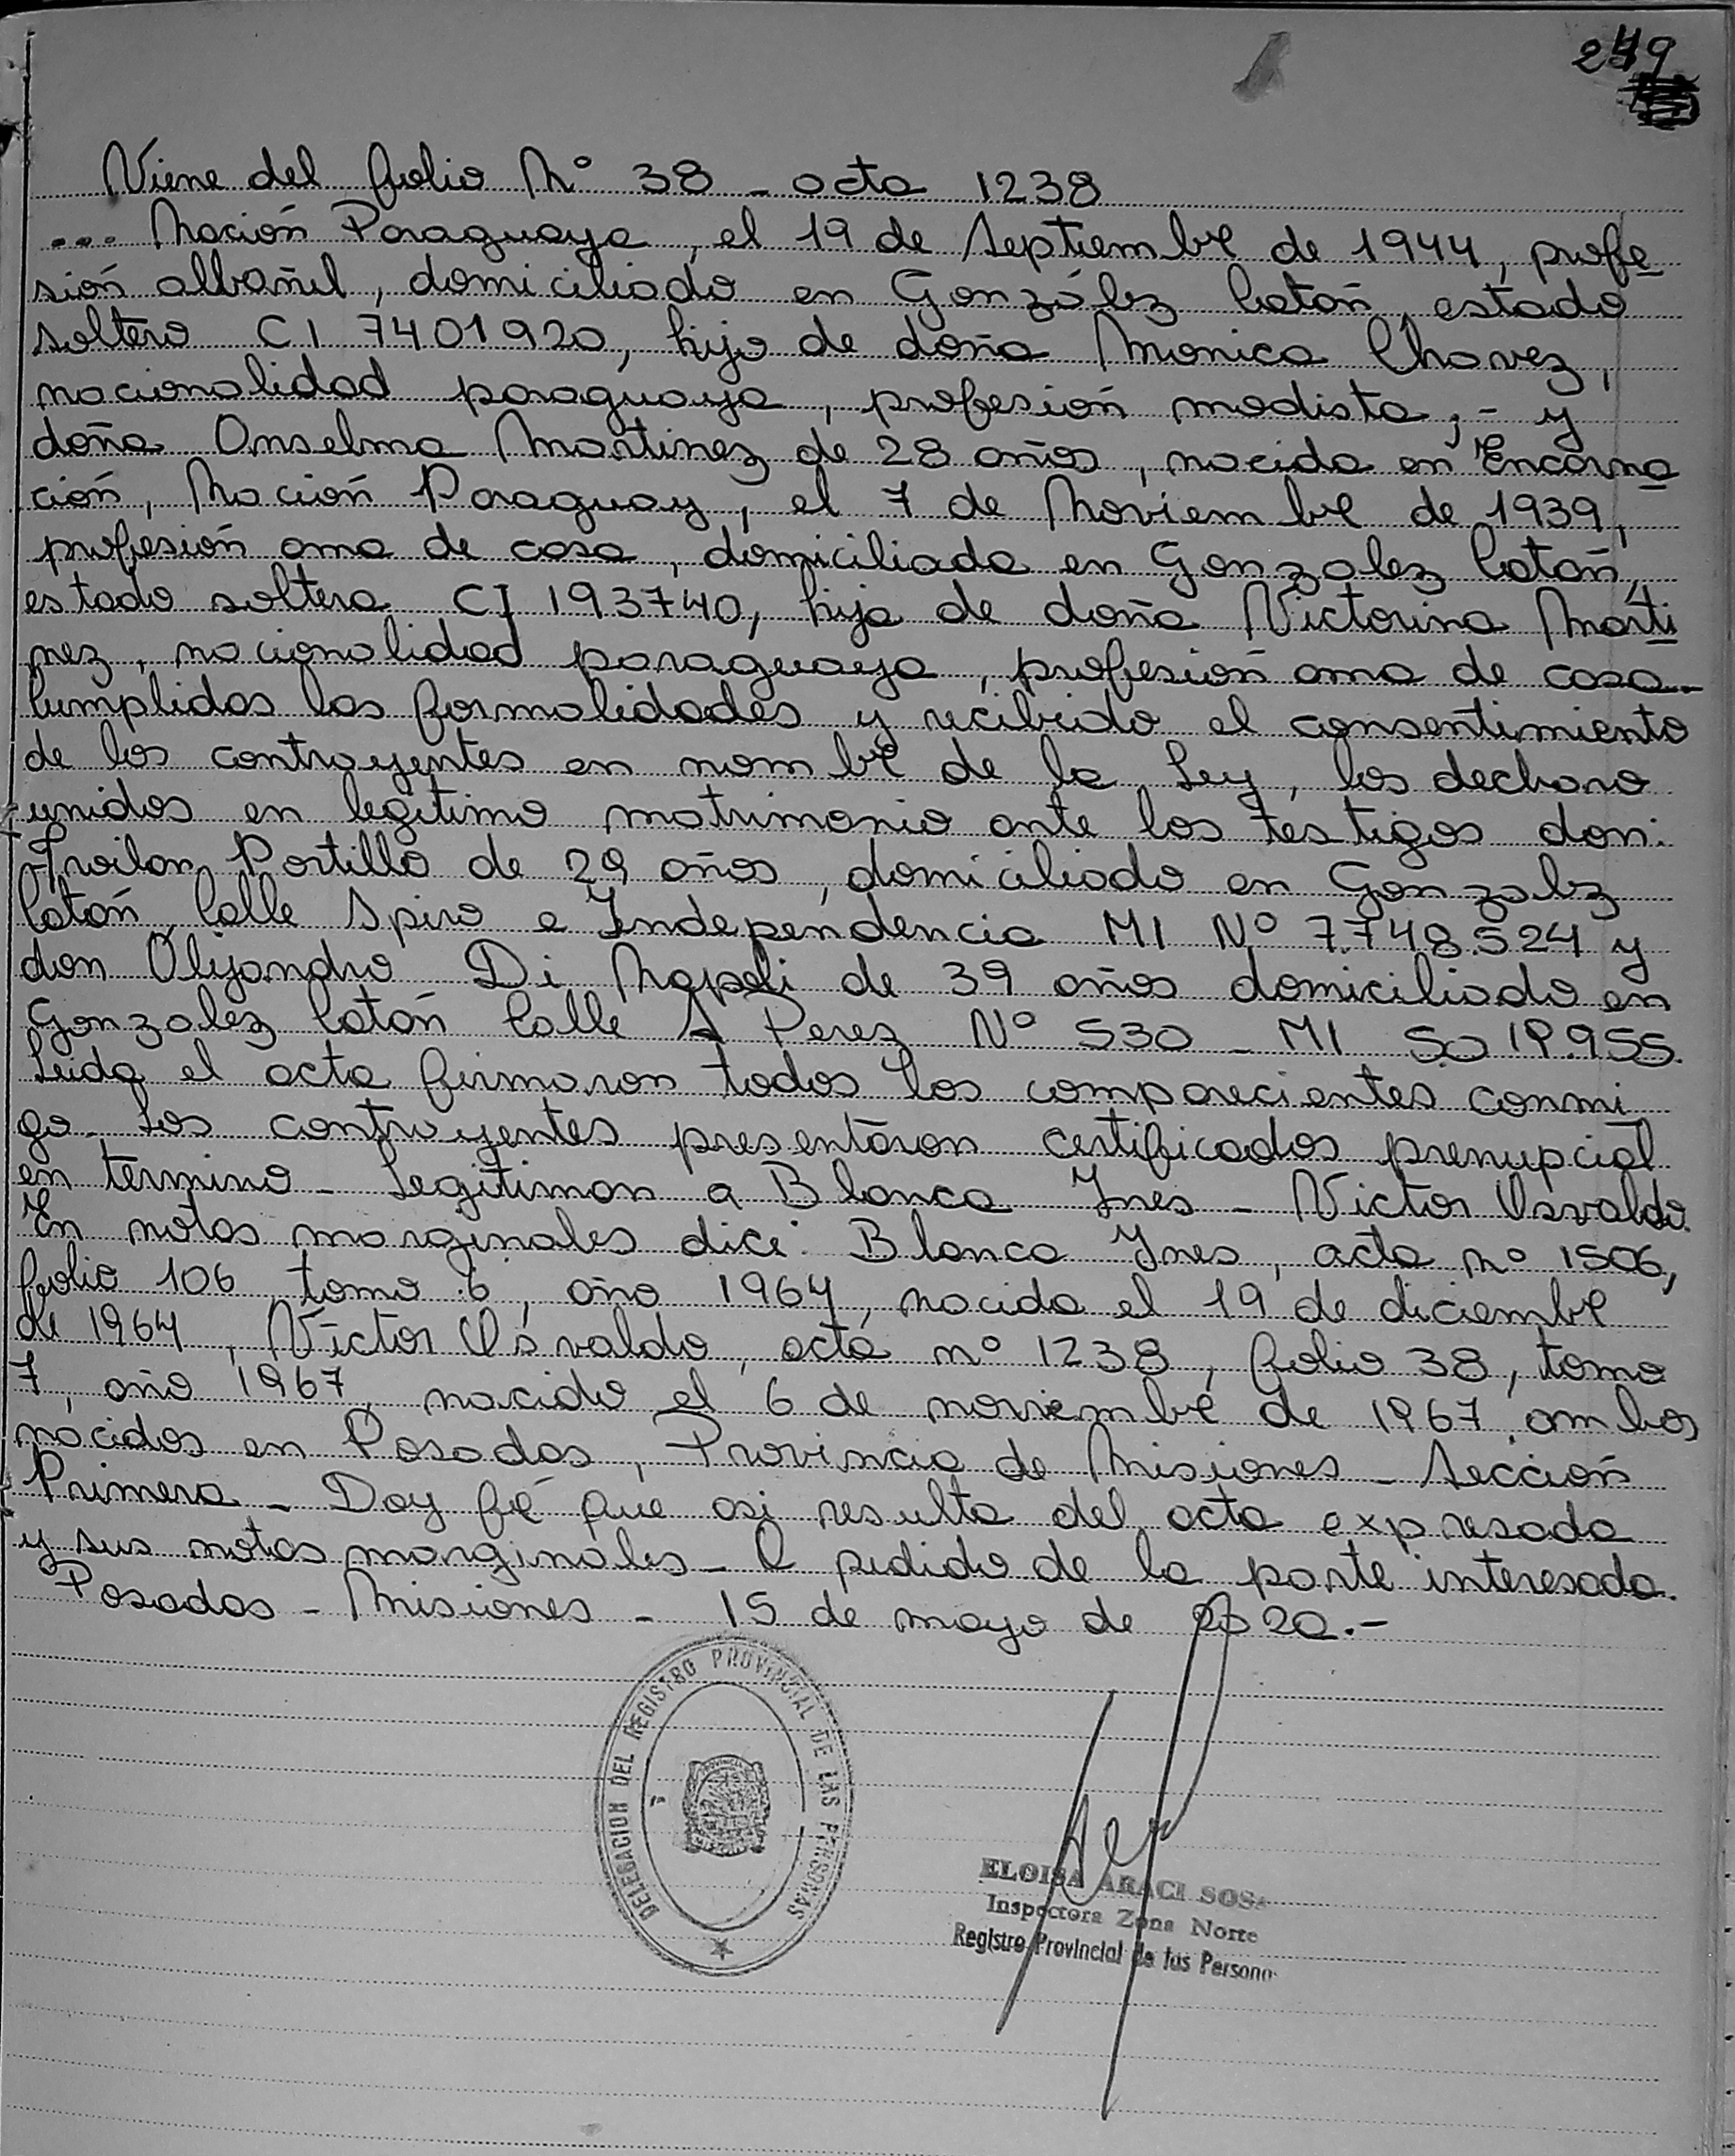 249
Viene del folio Nº 38 - acta 1238
... Nación Paraguaya, el 19 de Septiembre de 1944, profe
sión albañil, domiciliado en González Catán, estado
soltero CI 7401920, hijo de doña Monica Chavez,
nacionalidad paraguaya, profesión modista, - y
doña Anselma Martinez de 28 años, nacida en Encarna
ción, Nación Paraguay, el 7 de Noviembre de 1939,
profesión ama de casa, domiciliada en Gonzalez Catán,
estado soltera CI 193740, hija de doña Victorina Marti
nez, nacionalidad paraguaya, profesión ama de casa.-
Cumplidas las formalidades y recibido el consentimiento
de los contrayentes en nombre de la Ley, los declaro
unidos en legitimo matrimonio ante los testigos don:
Froilan Portillo de 29 años, domiciliado en Gonzalez
Catán, Calle Spiro e Independencia MI Nº 7.748.524 y
don Alejandro Di Napoli de 39 años domiciliado en
Gonzalez Catán Calle A Perez Nº 530 - MI 5.019.955.
Leida el acta firmaron todos los comparecientes conmi
go. Los contrayentes presentaron certificados prenupcial
en termino - Legitiman a Blanca Ynes - Victor Osvaldo.
En notas marginales dice: Blanca Ynes, acta nº 1506,
folio 106, tomo 6, año 1964, nacida el 19 de diciembre
de 1964, Victor Osvaldo, acta nº 1238, folio 38, tomo
7, año 1967, nacido el 6 de noviembre de 1967, ambos
nacidos en Posadas, Provincia de Misiones - Sección
Primera - Doy fé que asi resulta del acta expresada
y sus notas marginales - A pedido de la parte interesada.
Posadas - Misiones - 15 de mayo de 2020.-
DELEGACION DEL REGISTRO PROVINCIAL DE LAS PERSONAS
ELOISA ARACI SOSA
Inspectora Zona Norte
Registro Provincial de las Persona